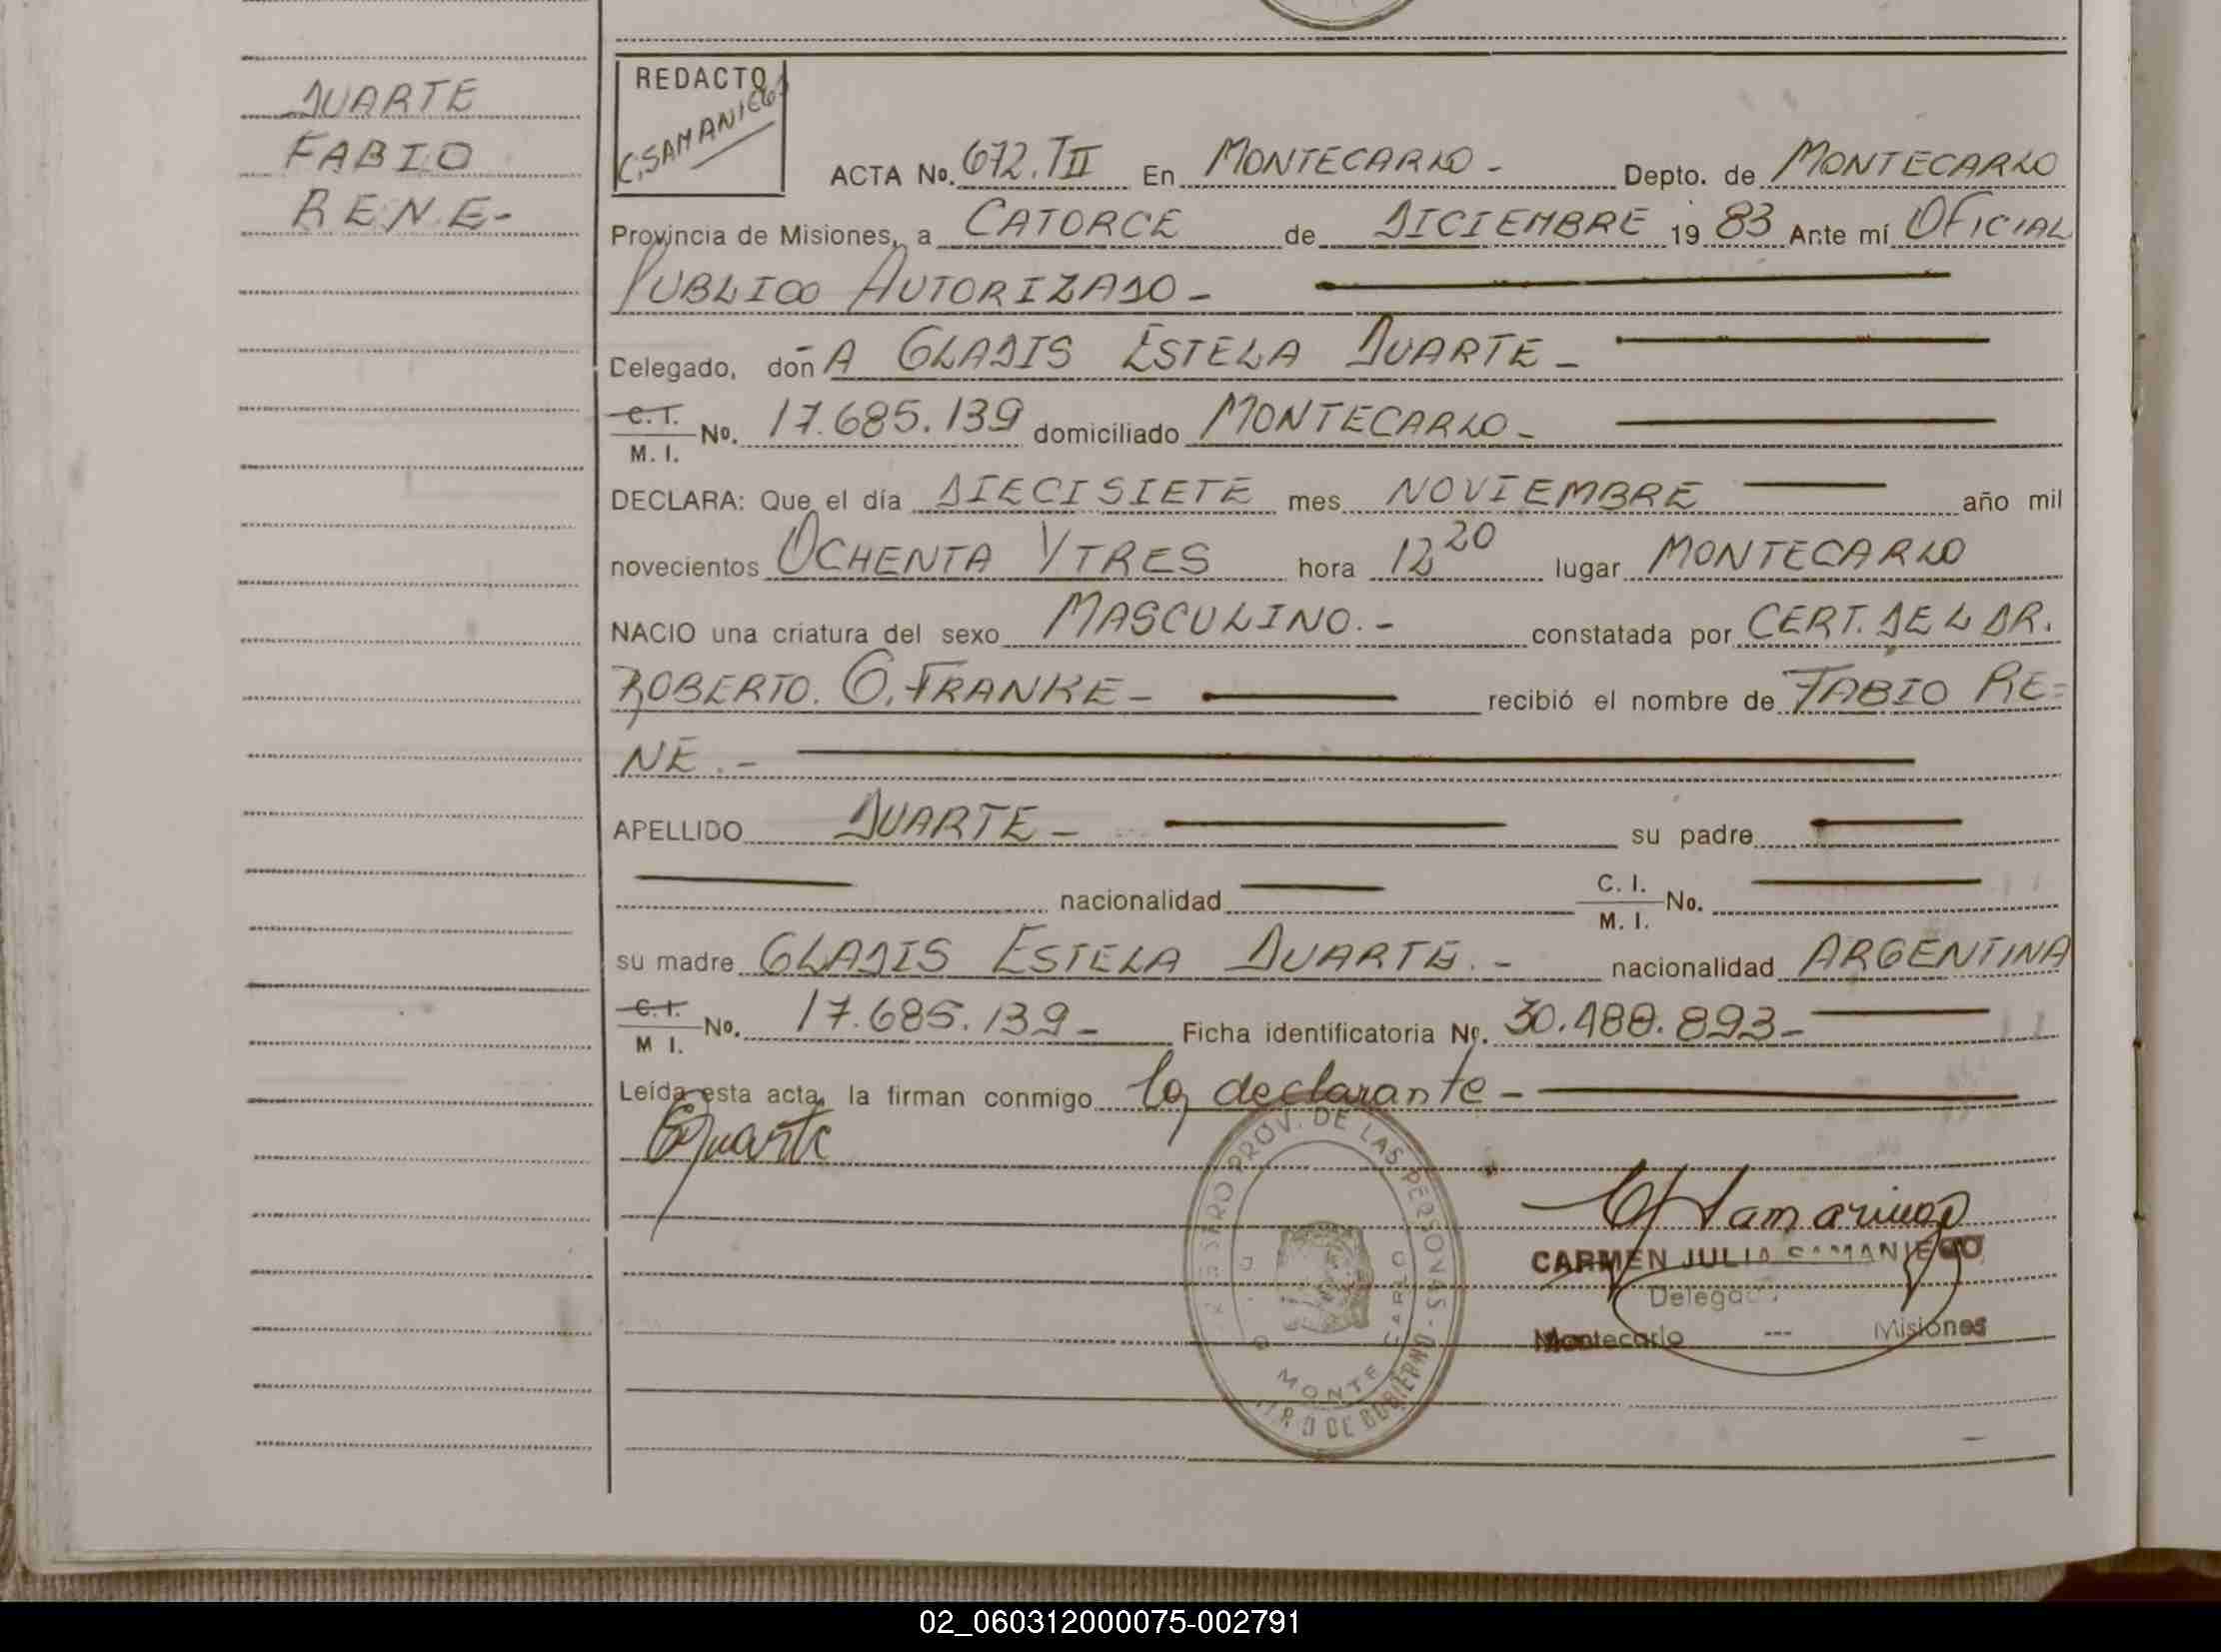 DUARTE
FABIO
RENE-
REDACTO
C. SAMANIEGO
ACTA No. 672. TII En MONTECARLO - Depto. de MONTECARLO
Provincia de Misiones, a CATORCE de DICIEMBRE 19 83 Ante mí OFICIAL
PUBLICO AUTORIZADO -
Delegado, don A GLADIS ESTELA DUARTE -
C. I. / M. I. No. 17.685.139 domiciliado MONTECARLO -
DECLARA: Que el día DIECISIETE mes NOVIEMBRE año mil
novecientos OCHENTA Y TRES hora 12 20 lugar MONTECARLO
NACIO una criatura del sexo MASCULINO. - constatada por CERT. DEL DR.
ROBERTO. O. FRANKE - recibió el nombre de FABIO RE=
NE . -
APELLIDO DUARTE - su padre
nacionalidad C. I. / M. I. No.
su madre GLADIS ESTELA DUARTE. - nacionalidad ARGENTINA
C. I. / M I. No. 17.685.139 - Ficha identificatoria No. 30.488.893 -
Leída esta acta, la firman conmigo la declarante -
GDuarte
REGISTRO PROV. DE LAS PERSONAS - MONTE CARLO
DE GOBIERNO
CARMEN JULIA SAMANIEGO
Delegada
Montecarlo --- Misiones
02_060312000075-002791